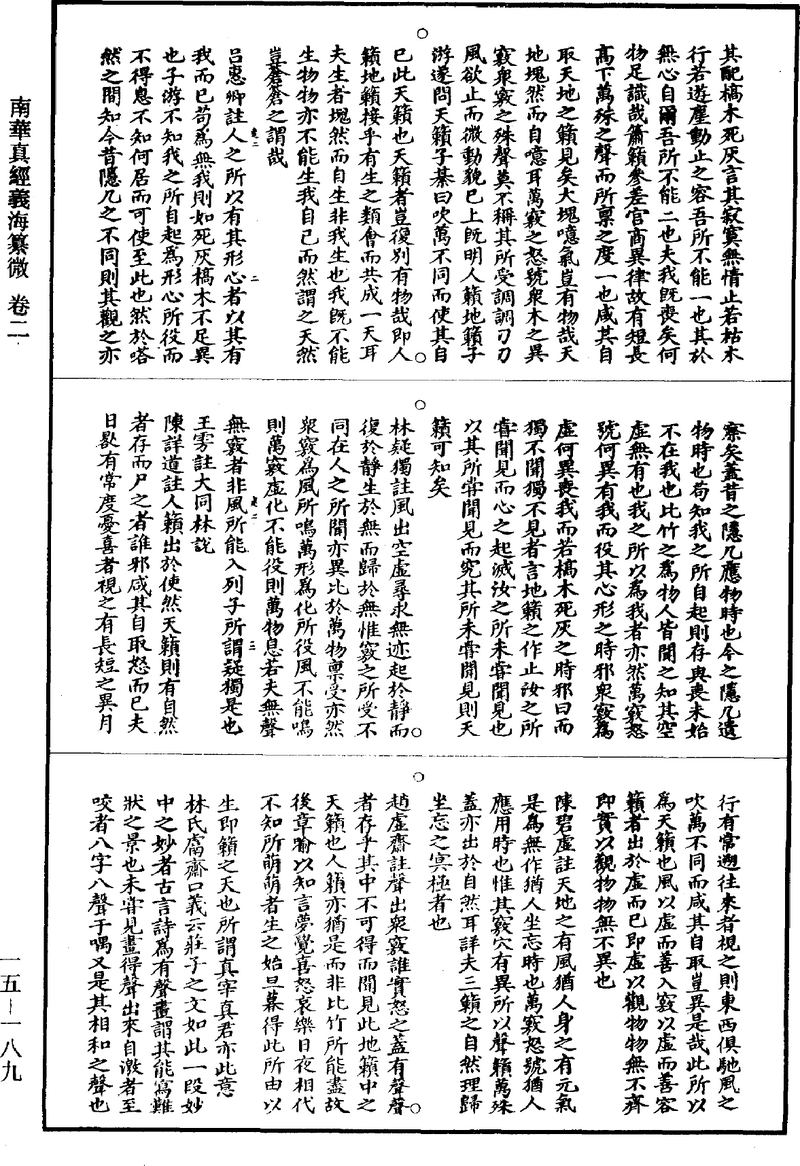 南華真經義海纂微 卷二
一五—一八九
其配槁木死灰言其寂寞無情止若枯木
行若遊塵動止之容吾所不能一也其於
無心自爾吾所不能二也夫我既喪矣何
物足識哉簫籟參差宮商異律故有短長
高下萬殊之聲而所禀之度一也咸其自
取天地之籟見矣大塊噫氣豈有物哉天
地塊然而自噫耳萬竅之怒號衆木之異
竅衆竅之殊聲莫不稱其所受調調刁刁
風欲止而微動貌已上既明人籟地籟子
游遂問天籟子綦曰吹萬不同而使其自
已此天籟也天籟者豈復別有物哉即人
籟地籟接乎有生之類會而共成一天耳
夫生者塊然而自生非我生也我既不能
生物物亦不能生我自已而然謂之天然
豈蒼蒼之謂哉
呂惠卿註人之所以有其形心者以其有
我而已苟為無我則如死灰槁木不足異
也子游不知我之所自起為形心所役而
不得息不知何居而可使至此也然於嗒
然之間知今昔隱几之不同則其觀之亦
察矣蓋昔之隱几應物時也今之隱几遺
物時也苟知我之所自起則存與喪未始
不在我也比竹之為物人皆聞之知其空
虛無有也我之所以為我者亦然萬竅怒
號何異有我而役其心形之時邪衆竅為
虛何異喪我而若槁木死灰之時邪曰而
獨不聞獨不見者言地籟之作止汝之所
嘗聞見而心之起滅汝之所未嘗聞見也
以其所嘗聞見而究其所未嘗聞見則天
籟可知矣
林疑獨註風出空虛尋求無迹起於靜而
復於靜生於無而歸於無惟竅之所受不
同在人之所聞亦異比於萬物禀受亦然
衆竅為風所鳴萬形為化所役風不能鳴
則萬竅虛化不能役則萬物息若夫無聲
無竅者非風所能入列子所謂疑獨是也
王雱註大同林說
陳詳道註人籟出於使然天籟則有自然
者存而尸之者誰邪咸其自取怒而已夫
日晷有常度憂喜者視之有長短之異月
行有常遡往來者視之則東西俱馳風之
吹萬不同而咸其自取豈異是哉此所以
為天籟也風以虛而善入竅以虛而善容
籟者出於虛而已即虛以觀物物無不齊
即實以觀物物無不異也
陳碧虛註天地之有風猶人身之有元氣
是為無作猶人坐忘時也萬竅怒號猶人
應用時也惟其竅穴有異所以聲籟萬殊
蓋亦出於自然耳詳夫三籟之自然理歸
坐忘之冥極者也
趙虛齋註聲出衆竅誰實怒之蓋有聲聲
者存乎其中不可得而聞見此地籟中之
天籟也人籟亦猶是而非比竹所能盡故
後章喻以知言夢覺喜怒哀樂日夜相代
不知所萌萌者生之始旦暮得此所由以
生即籟之天也所謂真宰真君亦此意
林氏鬳齋口義云莊子之文如此一段妙
中之妙者古言詩為有聲畫謂其能寫難
狀之景也未嘗見畫得聲出來自激者至
咬者八字八聲于喁又是其相和之聲也